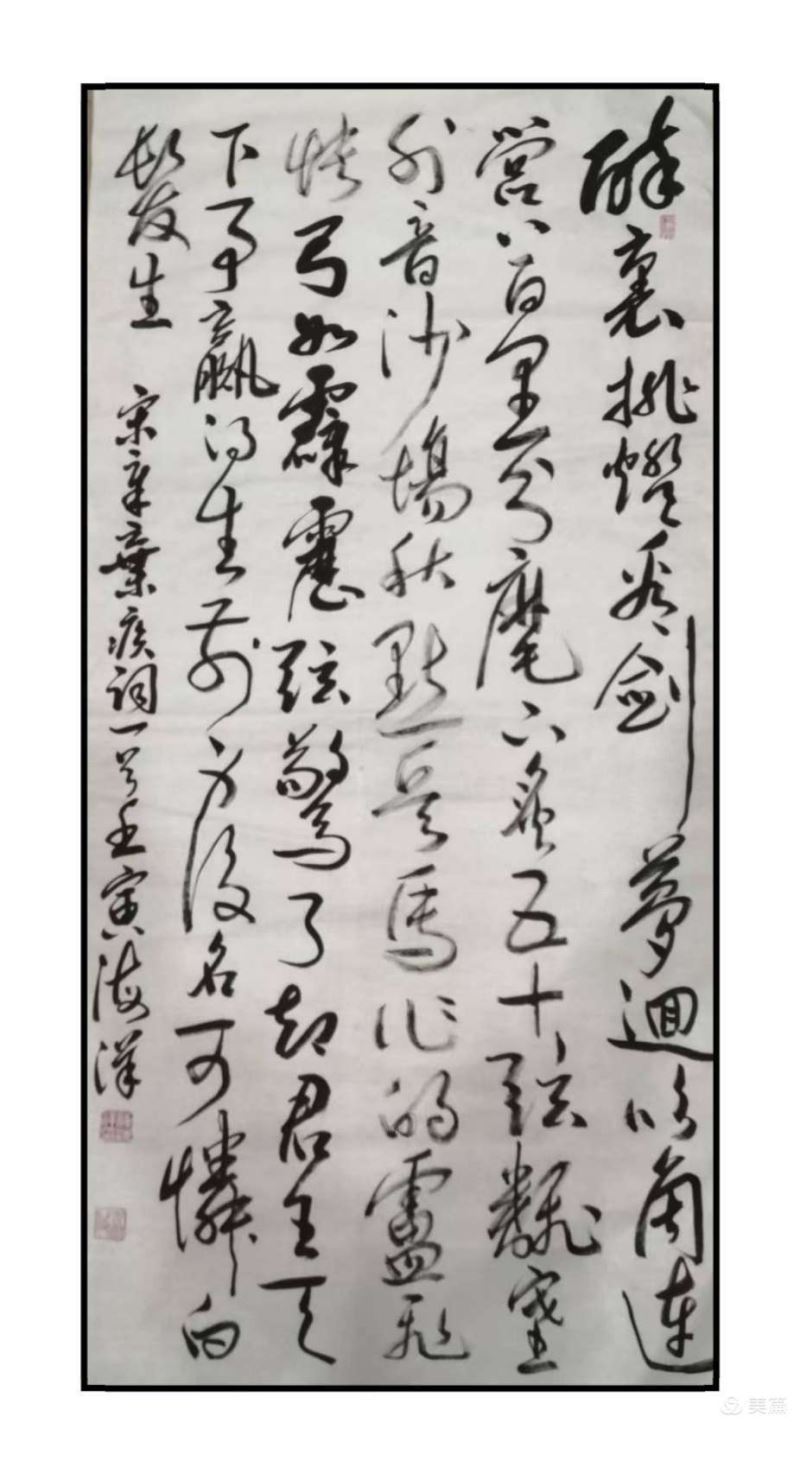 醉裏挑燈看劍夢迴吹角連
營八百里分麾下炙五十弦翻塞
外音沙場秋點兵馬作的盧飛
快弓如霹靂弦驚了却君王天
下事贏得生前身後名可憐白
髮生
宋辛棄疾詞一首壬寅海洋
美篇